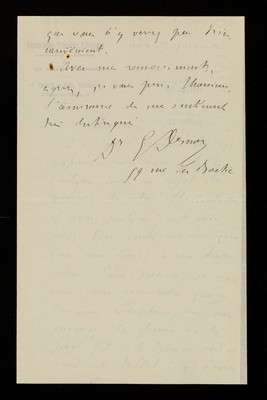 que vous n'y verrez pas d'in
convénient.
Avec mes remerciements,
agréez, je vous prie, Monsieur,
l'assurance de mes sentiments
très distingués
Dr G
19 rue La Boétie